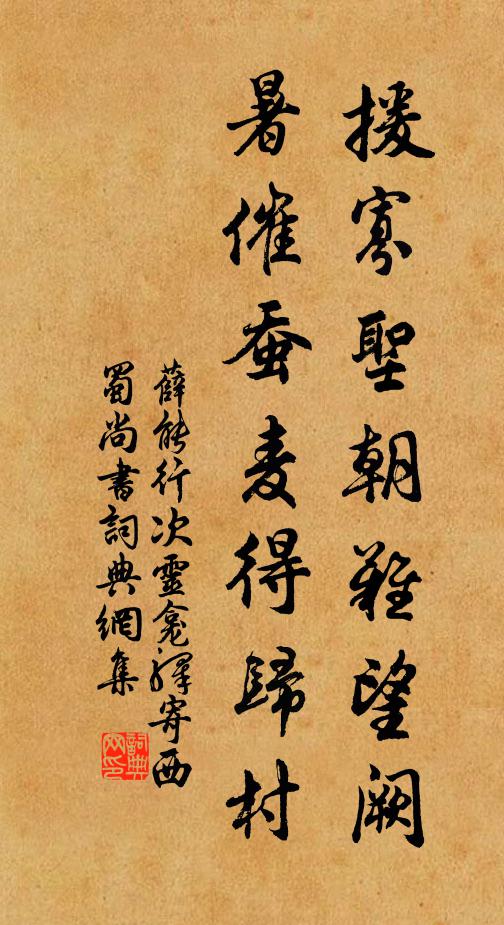 援寡聖朝難望闕
暑催蚕麦得歸村
薛能行次靈龕驛寄西
蜀尚書詞典網集
詞典
网印